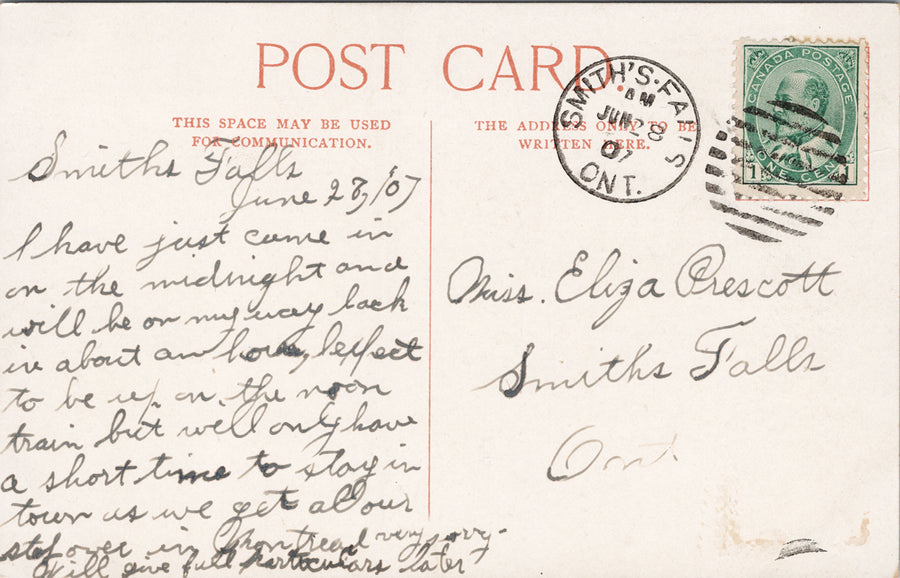 POST CARD.
THIS SPACE MAY BE USED
FOR COMMUNICATION.
THE ADDRESS ONLY TO BE
WRITTEN HERE.
SMITH'S·FALLS
AM
JUN 28
07
ONT.
CANADA POSTAGE
1 ONE CENT 1
Smiths Falls
June 28, / 07
I have just came in
on the midnight and
will be on my way back
in about an hour, I expect
to be up on the noon
train but will only have
a short time to stay in
town as we get all our
stop over in Montreal very sorry-
Will give full particulars later
Miss. Eliza Prescott
Smiths Falls
Ont.